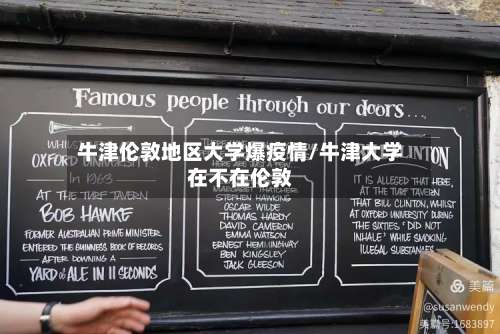 Famous people through our doors...
牛津伦敦地区大学爆疫情/牛津大学
在不在伦敦
WHILST
OXFORD UNIVERSITY
In 1963
AT THE TURF TAVERN
BOB HAWKE
FORMER AUSTRALIAN PRIME MINISTER
ENTERED THE GUINNESS BOOK OF RECORDS
AFTER DOWNING A
YARD of ALE IN 11 SECONDS
HERE ARE JUST A FEW
MARGARET THATCHER
STEPHEN HAWKING
OSCAR WILDE
THOMAS HARDY
DAVID CAMERON
EMMA WATSON
ERNEST HEMINGWAY
BEN KINGSLEY
JACK GLEESON
CLINTON
IT IS ALLEGED THAT HERE,
AT THE TURF TAVERN
THAT BILL CLINTON, WHILST
AT OXFORD UNIVERSITY DURING
THE SIXTIES, 'DID NOT
INHALE' WHILE SMOKING
ILLEGAL SUBSTANCES
美篇
@susanwendy
美篇号:1683897